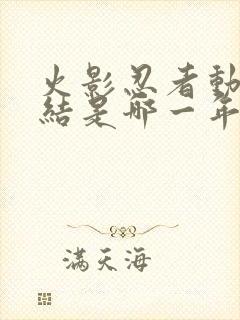 火影忍者動
結是哪一年
滿天海